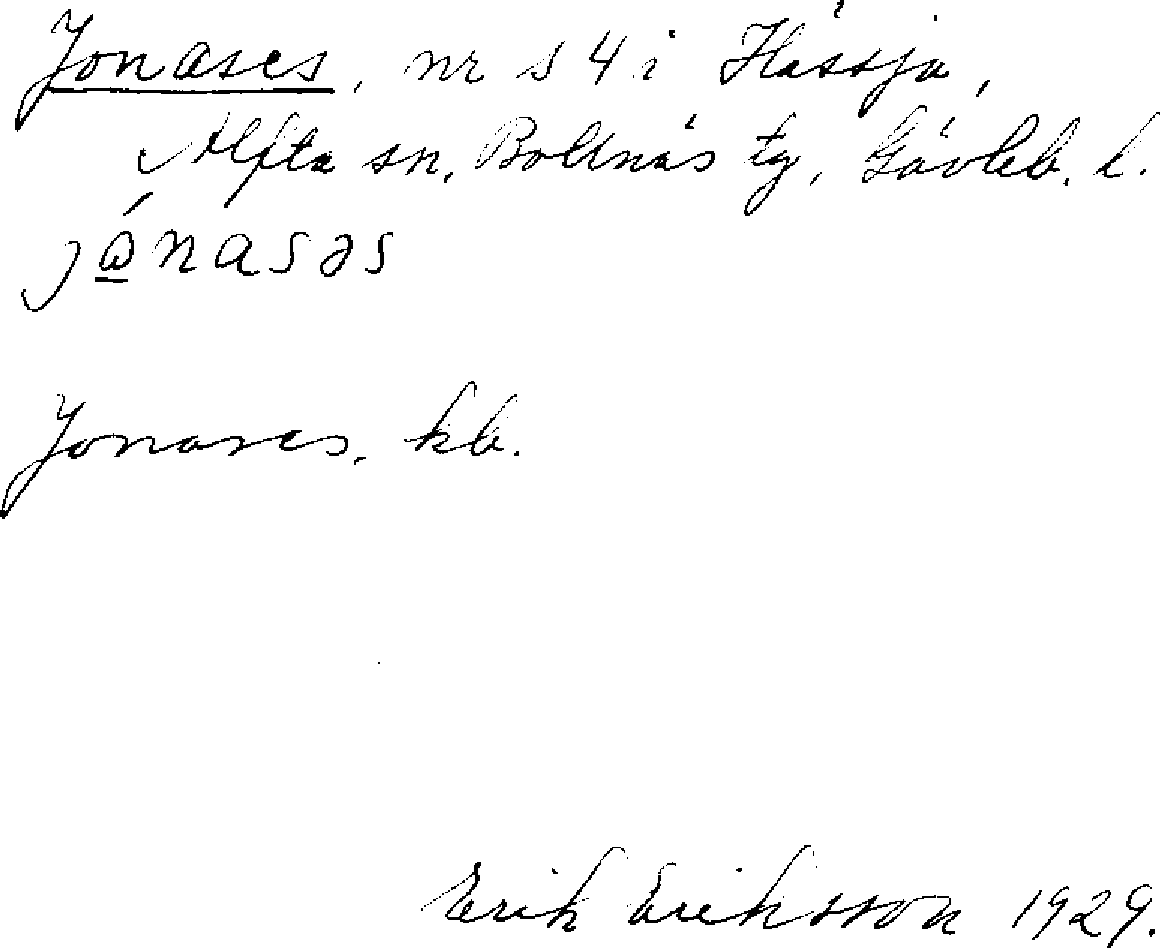 Jonases, nr s 4 i Hässja,
Alfta sn, Bollnäs tg, Gävleb. l.
jɷ́nasəs
Jonases, kb.
Erik Eriksson 1929.